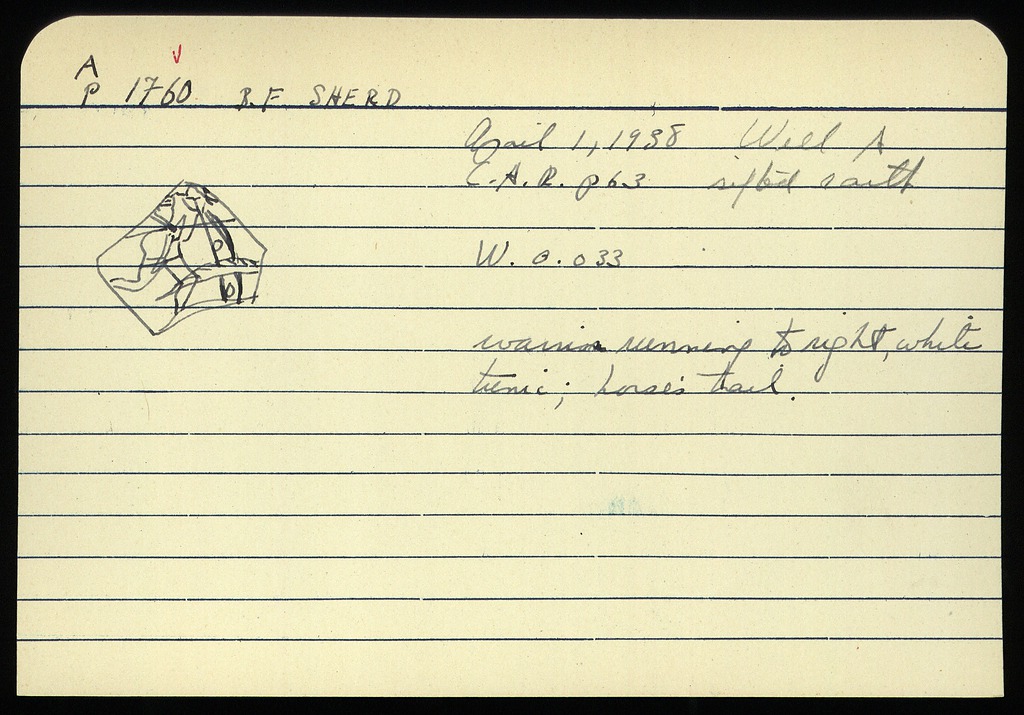 A
P 1760 B.F. SHERD
April 1, 1938 Well A
C.A.R. p 63 sifted earth
W. 0.033
warrior running to right, white
tunic; horse's tail.